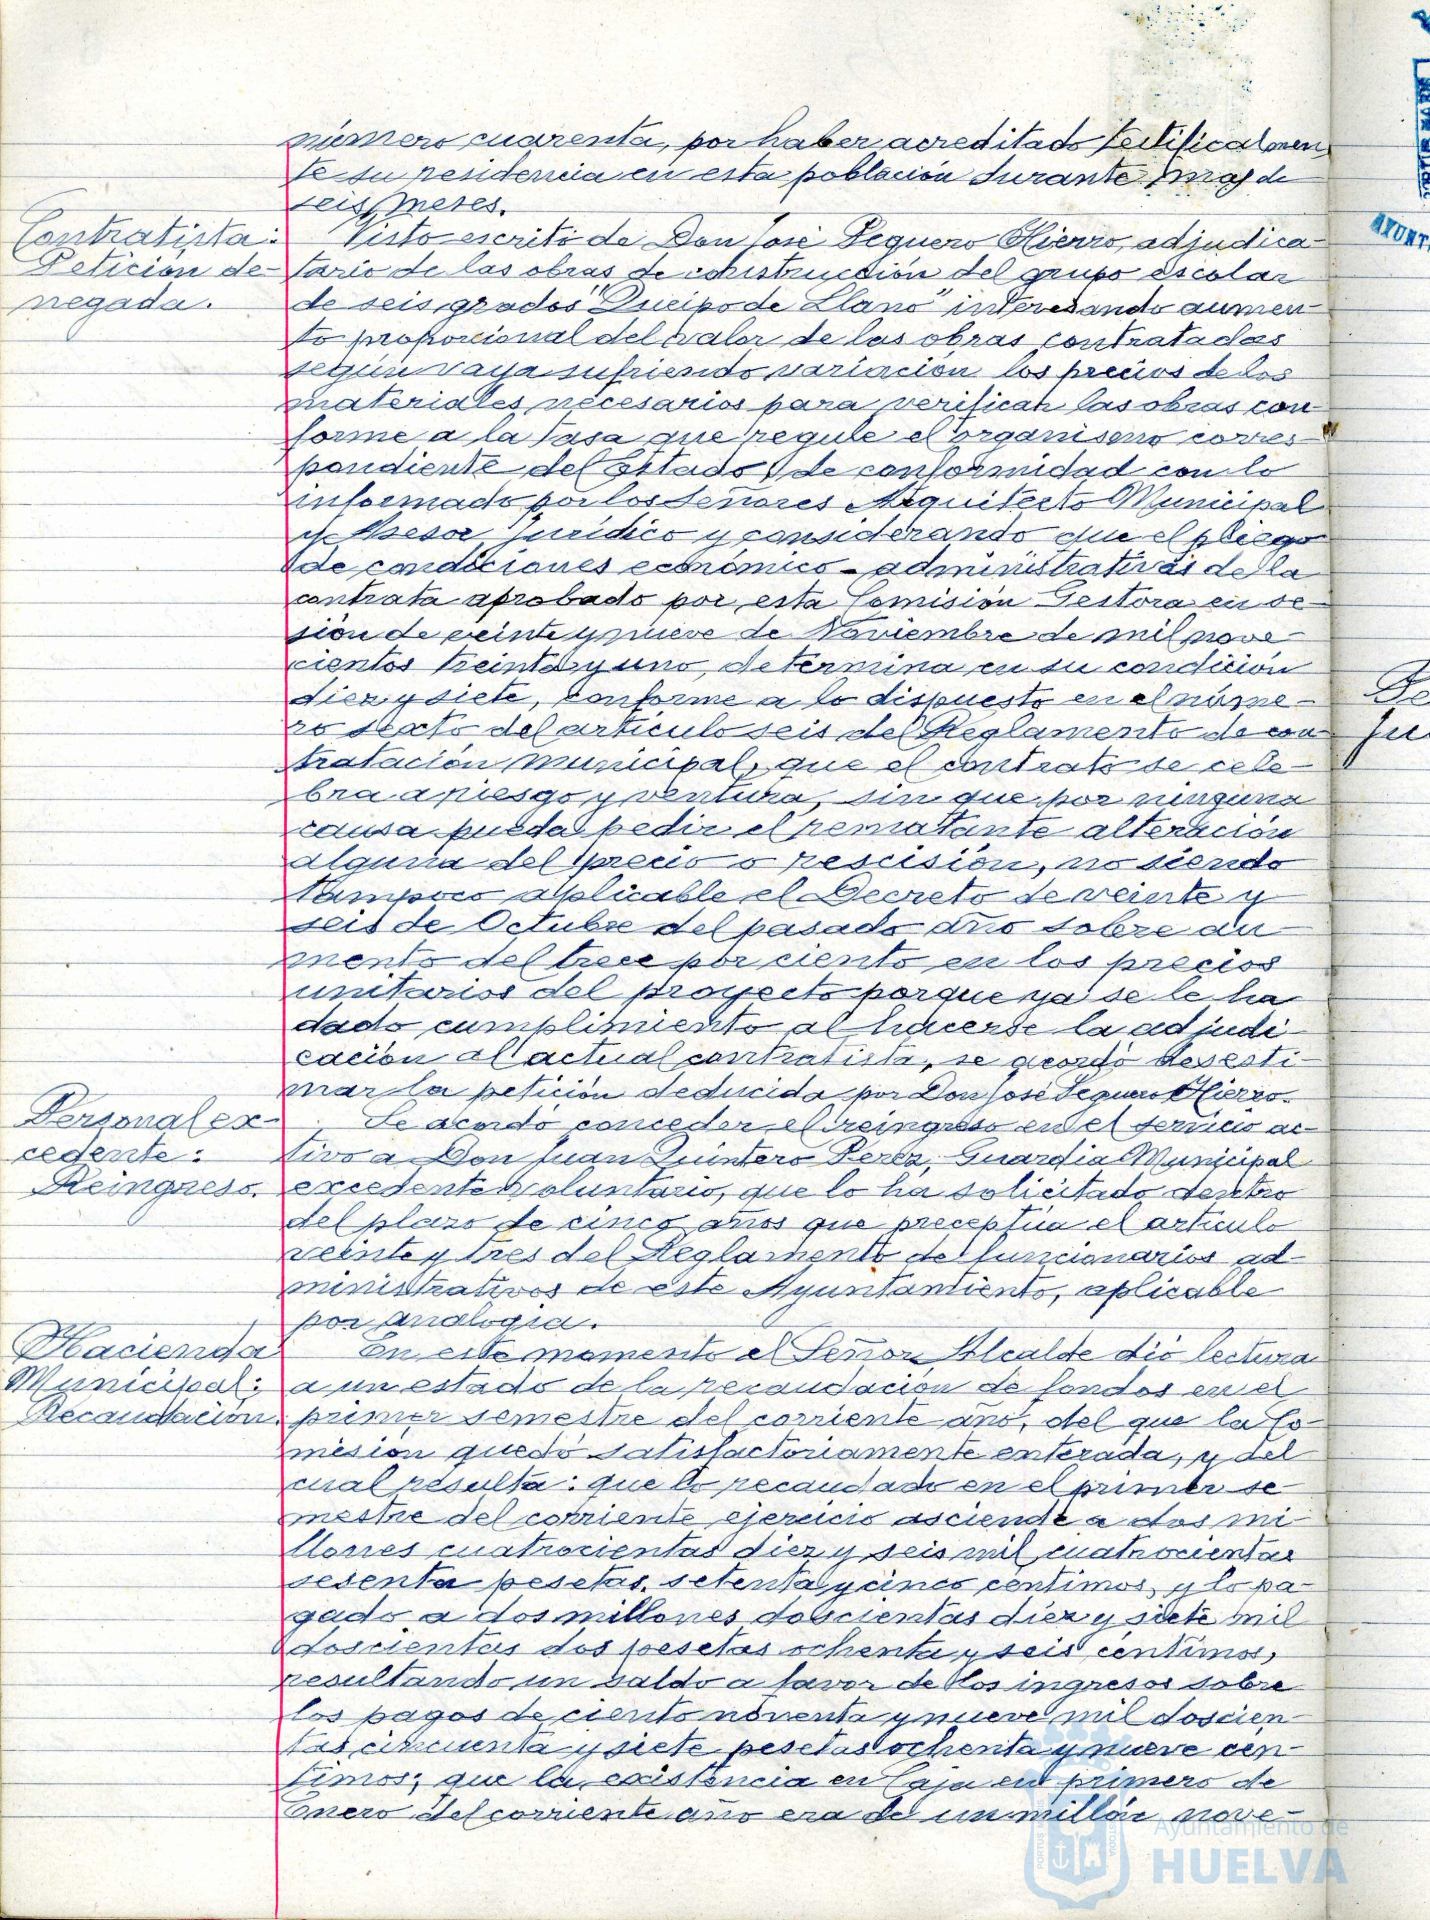 número cuarenta, por haber acreditado testificalmen
te su residencia en esta población durante mas de
seis meses.
Contratista:
Petición de-
negada.
Visto escrito de Don José Peguero Hierro, adjudica-
tario de las obras de construcción del grupo escolar
de seis grados "Queipo de Llano" interesando aumen-
to proporcional del valor de las obras contratadas
según vaya sufriendo variación los precios de los
materiales necesarios para verificar las obras con-
forme a la tasa que regule el organismo corres-
pondiente del Estado, de conformidad con lo
informado por los Señores Arquitecto Municipal
y Asesor Jurídico y considerando que el pliego
de condiciones económico-administrativas de la
contrata aprobado por esta Comisión Gestora en se-
sión de veinte y nueve de Noviembre de mil nove-
cientos treinta y uno, determina en su condición
diez y siete, conforme a lo dispuesto en el núme-
ro sexto del artículo seis del Reglamento de con-
tratación municipal, que el contrato se cele-
bra a riesgo y ventura, sin que por ninguna
causa pueda pedir el rematante alteración
alguna del precio o rescisión, no siendo
tampoco aplicable el Decreto de veinte y
seis de Octubre del pasado año sobre au-
mento del trece por ciento en los precios
unitarios del proyecto porque ya se le ha
dado cumplimiento al hacerse la adjudi-
cación al actual contratista, se acordó desesti-
mar la petición deducida por Don José Peguero Hierro.
Personal ex-
cedente:
Reingreso.
Se acordó conceder el reingreso en el servicio ac-
tivo a Don Juan Quintero Perez, Guardia Municipal
excedente voluntario, que lo ha solicitado dentro
del plazo de cinco años que preceptúa el artículo
veinte y tres del Reglamento de funcionarios ad-
ministrativos de este Ayuntamiento, aplicable
por analogia.
Hacienda
Municipal:
Recaudación.
En este momento el Señor Alcalde dió lectura
a un estado de la recaudación de fondos en el
primer semestre del corriente año, del que la Co-
misión quedó satisfactoriamente enterada, y del
cual resulta: que lo recaudado en el primer se-
mestre del corriente ejercicio asciende a dos mi-
llones cuatrocientas diez y seis mil cuatrocientas
sesenta pesetas, setenta y cinco céntimos, y lo pa-
gado a dos millones doscientas diez y siete mil
doscientas dos pesetas ochenta y seis céntimos,
resultando un saldo a favor de los ingresos sobre
los pagos de ciento noventa y nueve mil doscien-
tas cincuenta y siete pesetas ochenta y nueve cén-
timos; que la existencia en Caja en primero de
Enero del corriente año era de un millón nove-
Ayuntamiento de
HUELVA